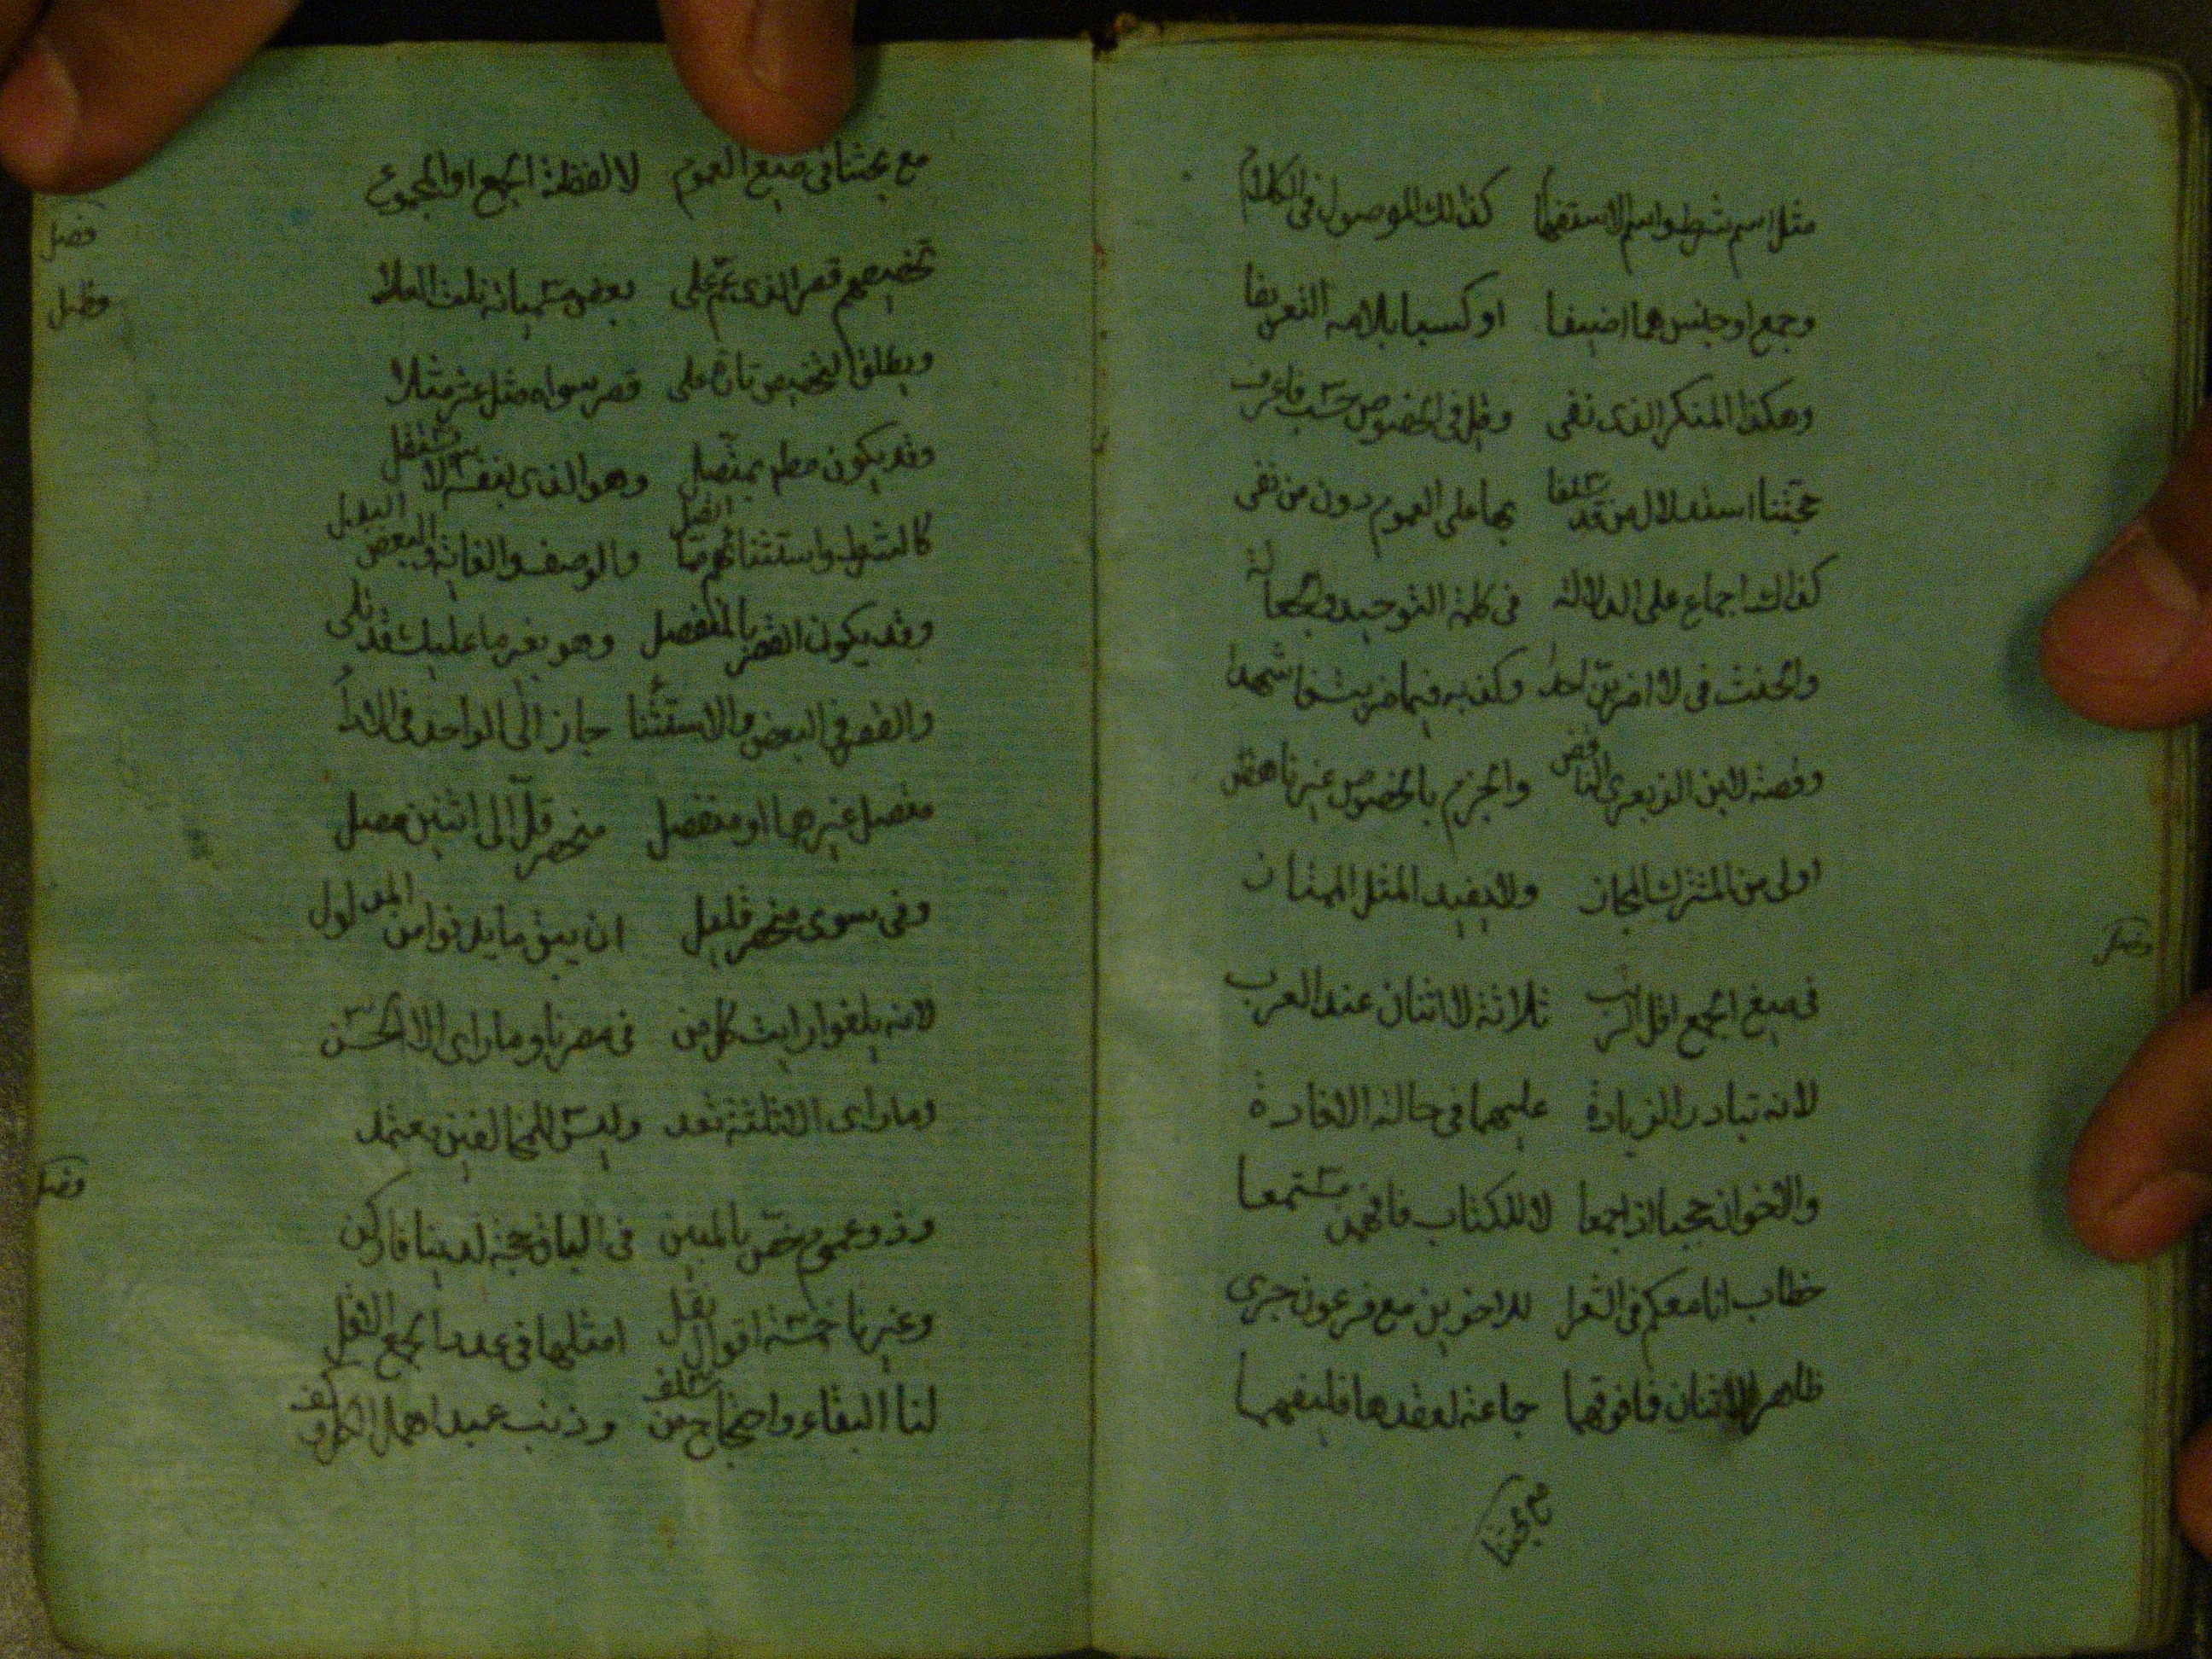 مثل اسم شرط واسم الاستفهام كذلك الموصول فى الكلام
وجمع او جنس هما اضيفا او كسيا بلامه التعريفا
وهكذا المنكر الذى نفى وقل فى الخصوص حسب فاعرف
حجتنا استدلال من قد سلفا بها على العموم دون من نفى
كذاك اجماع على الدلالة فى كلمة التوحيد فى
والحنث فى لا اضربن احدا وكف به فيما ضربت شهدا
وقصة لابن الزبعرى الناقض والجزم بالخصوص غير ناهض
اولى من المشترك المجاز ولا يفيد المثل الممتاز
فصل
فى صيغ الجمع اقل الرتب ثلاثة لا اثنان عند العرب
لانه تبادر الزيادة عليهما فى حالة الافادة
والاخوان حجبا اذ اجمعا لا للكتاب فافهمن مستمعا
خطاب انا معكم فى الشعرا للاخوين مع فرعون جرى
ظاهر الاثنان فما فوقهما جماعة لعقدها فليفهما
مع بحثنا
مع بحثنا فى صيغ العموم لا لفظة الجمع او المجموع
فصل
تخصيصهم قصر الذى عم على بعض مسمياته نلت العلا
وقيل
ويطلق التخصيص تارة على قصر سواه مثل عشر مثلا
وقد يكون بمتصل وهو الذى بنفسه لا يستقل
كالشرط واستثنائهم متصل والوصف والغاية والبعض البدل
وقد يكون القصر بالمنفصل وهو بغير ما عليك قد تلى
والقصر فى البعض والاستثناء جاز الى الواحد فى الاداء
متصل غيرهما او منفصل منحصر قل الى اثنين يصل
وفى سوى منحصر فليقل ان يبق ما يدنو من المدلول
لانه يلغو رايت كل من فى مصرنا وما راى الا الحسن
وما راى الا ثلثة تعد وليس للمخالفين معتمد
فصل
وذو عموم خص بالمبين فى الباق حجة لدينا فاركن
وغيرنا خمسة اقوال نقل امثلها فى عدد الجمع الاقل
لنا البقاء واحتجاج من سلف وذنب عبد اهمل الكل وكف